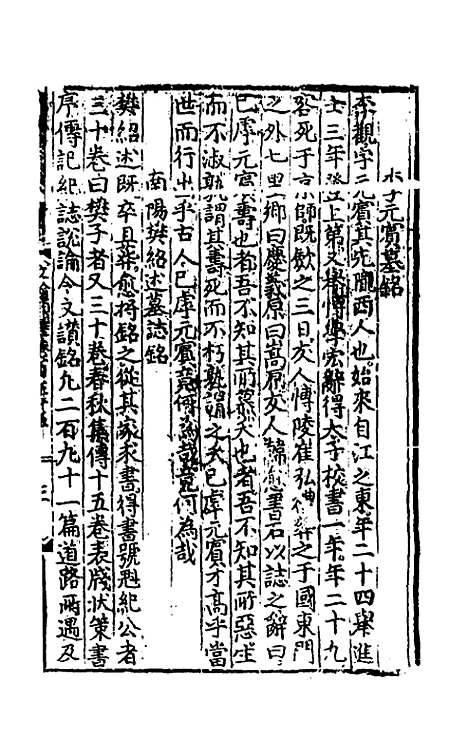 李元賓墓銘
李觀字元賓其先隴西人也始來自江之東年二十四舉進
士三年登上第又舉博學宏辭得太子校書一年年二十九
客死于京師既歛之三日友人博陵崔弘禮葬之于國東門
之外七里鄉曰慶義原曰嵩原友人韓愈書石以誌之辭曰
已虖元賓壽也者吾不知其所慕夭也者吾不知其所惡生
而不淑孰謂其壽死而不朽孰謂之夭已虖元賓才高乎當
世而行出乎古人已虖元賓竟何為哉竟何為哉
南陽樊紹述墓誌銘
樊紹述既卒且葬愈將銘之從其家求書得書號魁紀公者
三十卷曰樊子者又三十卷春秋集傳十五卷表牋狀策書
序傳記紀誌說論今文讚銘凡二百九十一篇道路所遇及
三